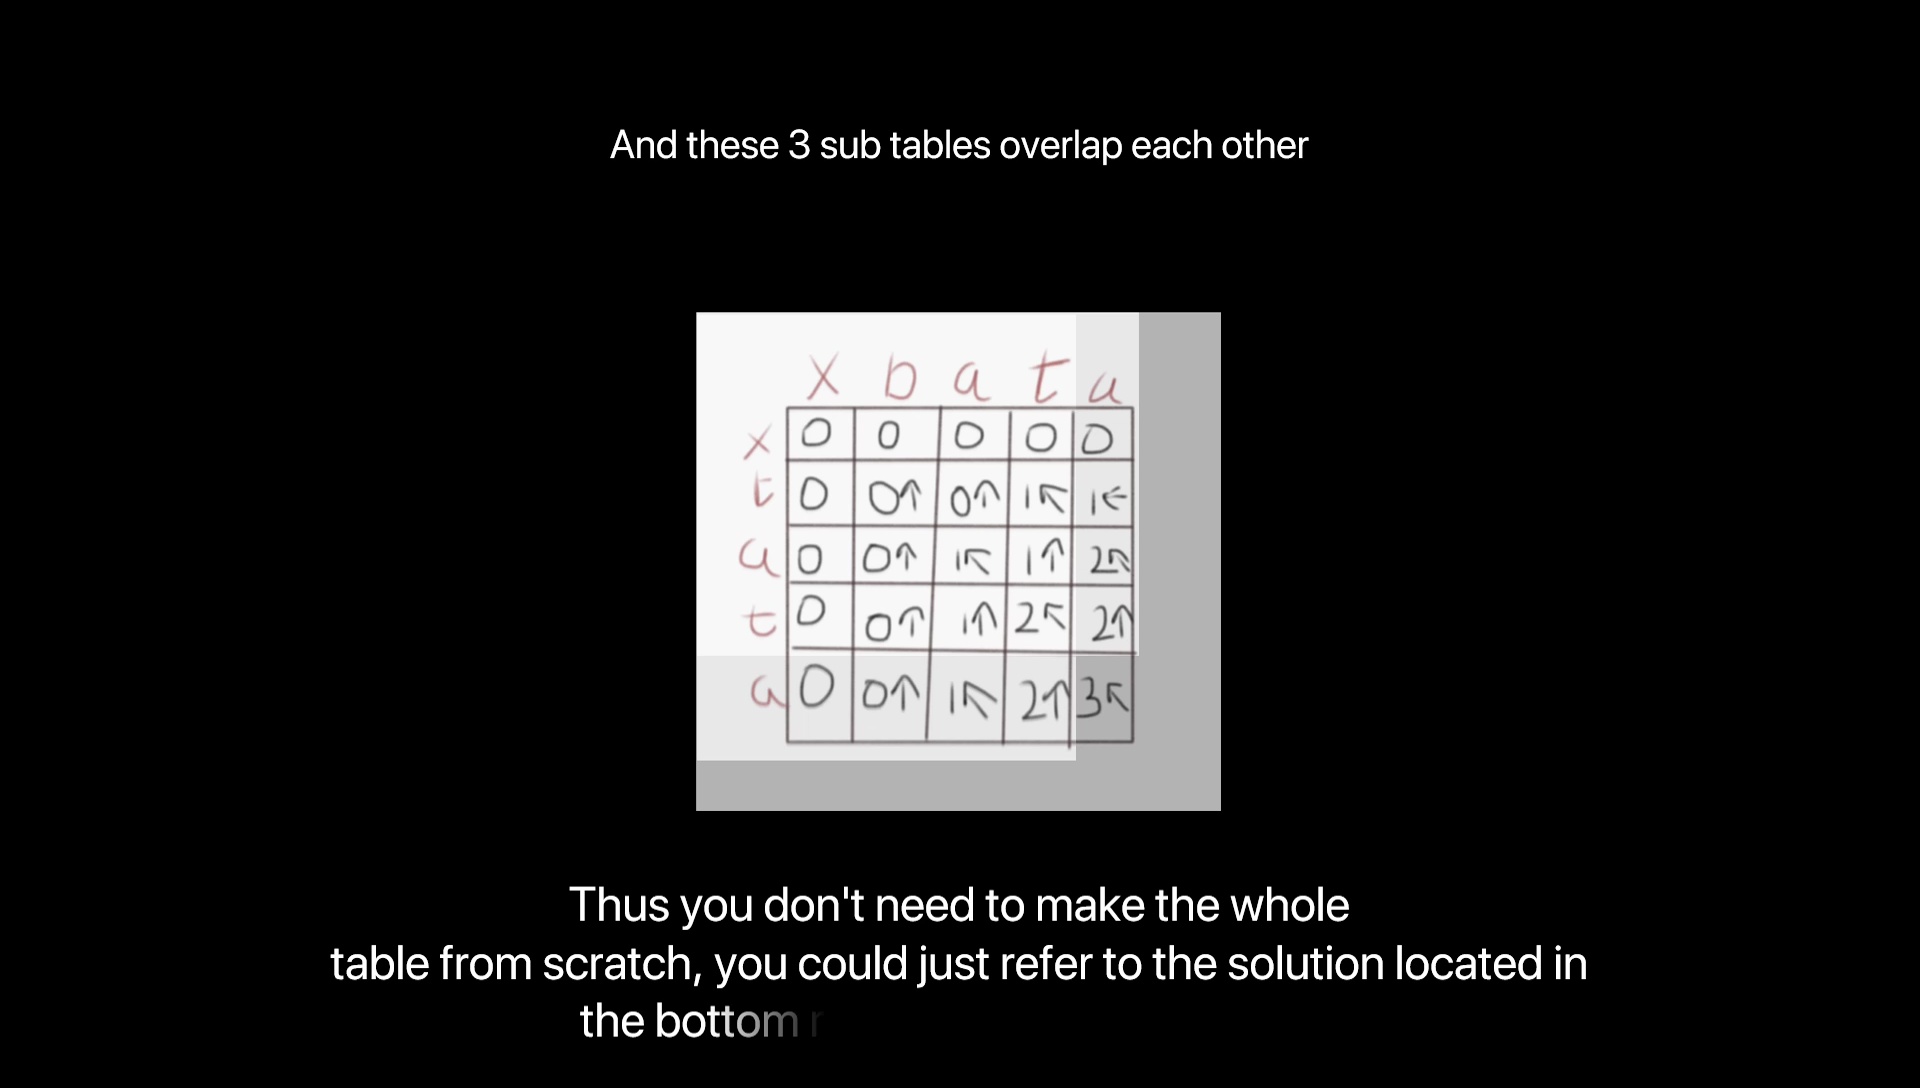 And these 3 sub tables overlap each other
x b a t a
x 0 0 0 0 0
t 0 0↑ 0↑ 1↖ 1←
a 0 0↑ 1↖ 1↑ 2↖
t 0 0↑ 1↑ 2↖ 2↑
a 0 0↑ 1↖ 2↑ 3↖
Thus you don't need to make the whole
table from scratch, you could just refer to the solution located in
the bottom r